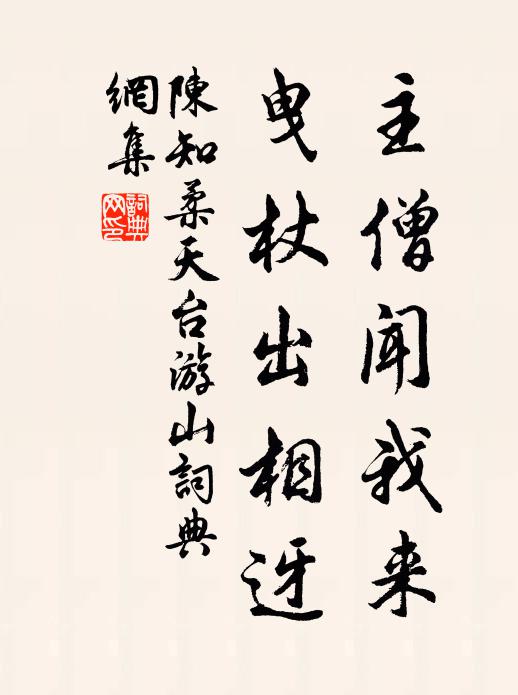 主僧闻我来
曳杖出相迓
陳知柔天台游山詞典
網集
詞典
网印